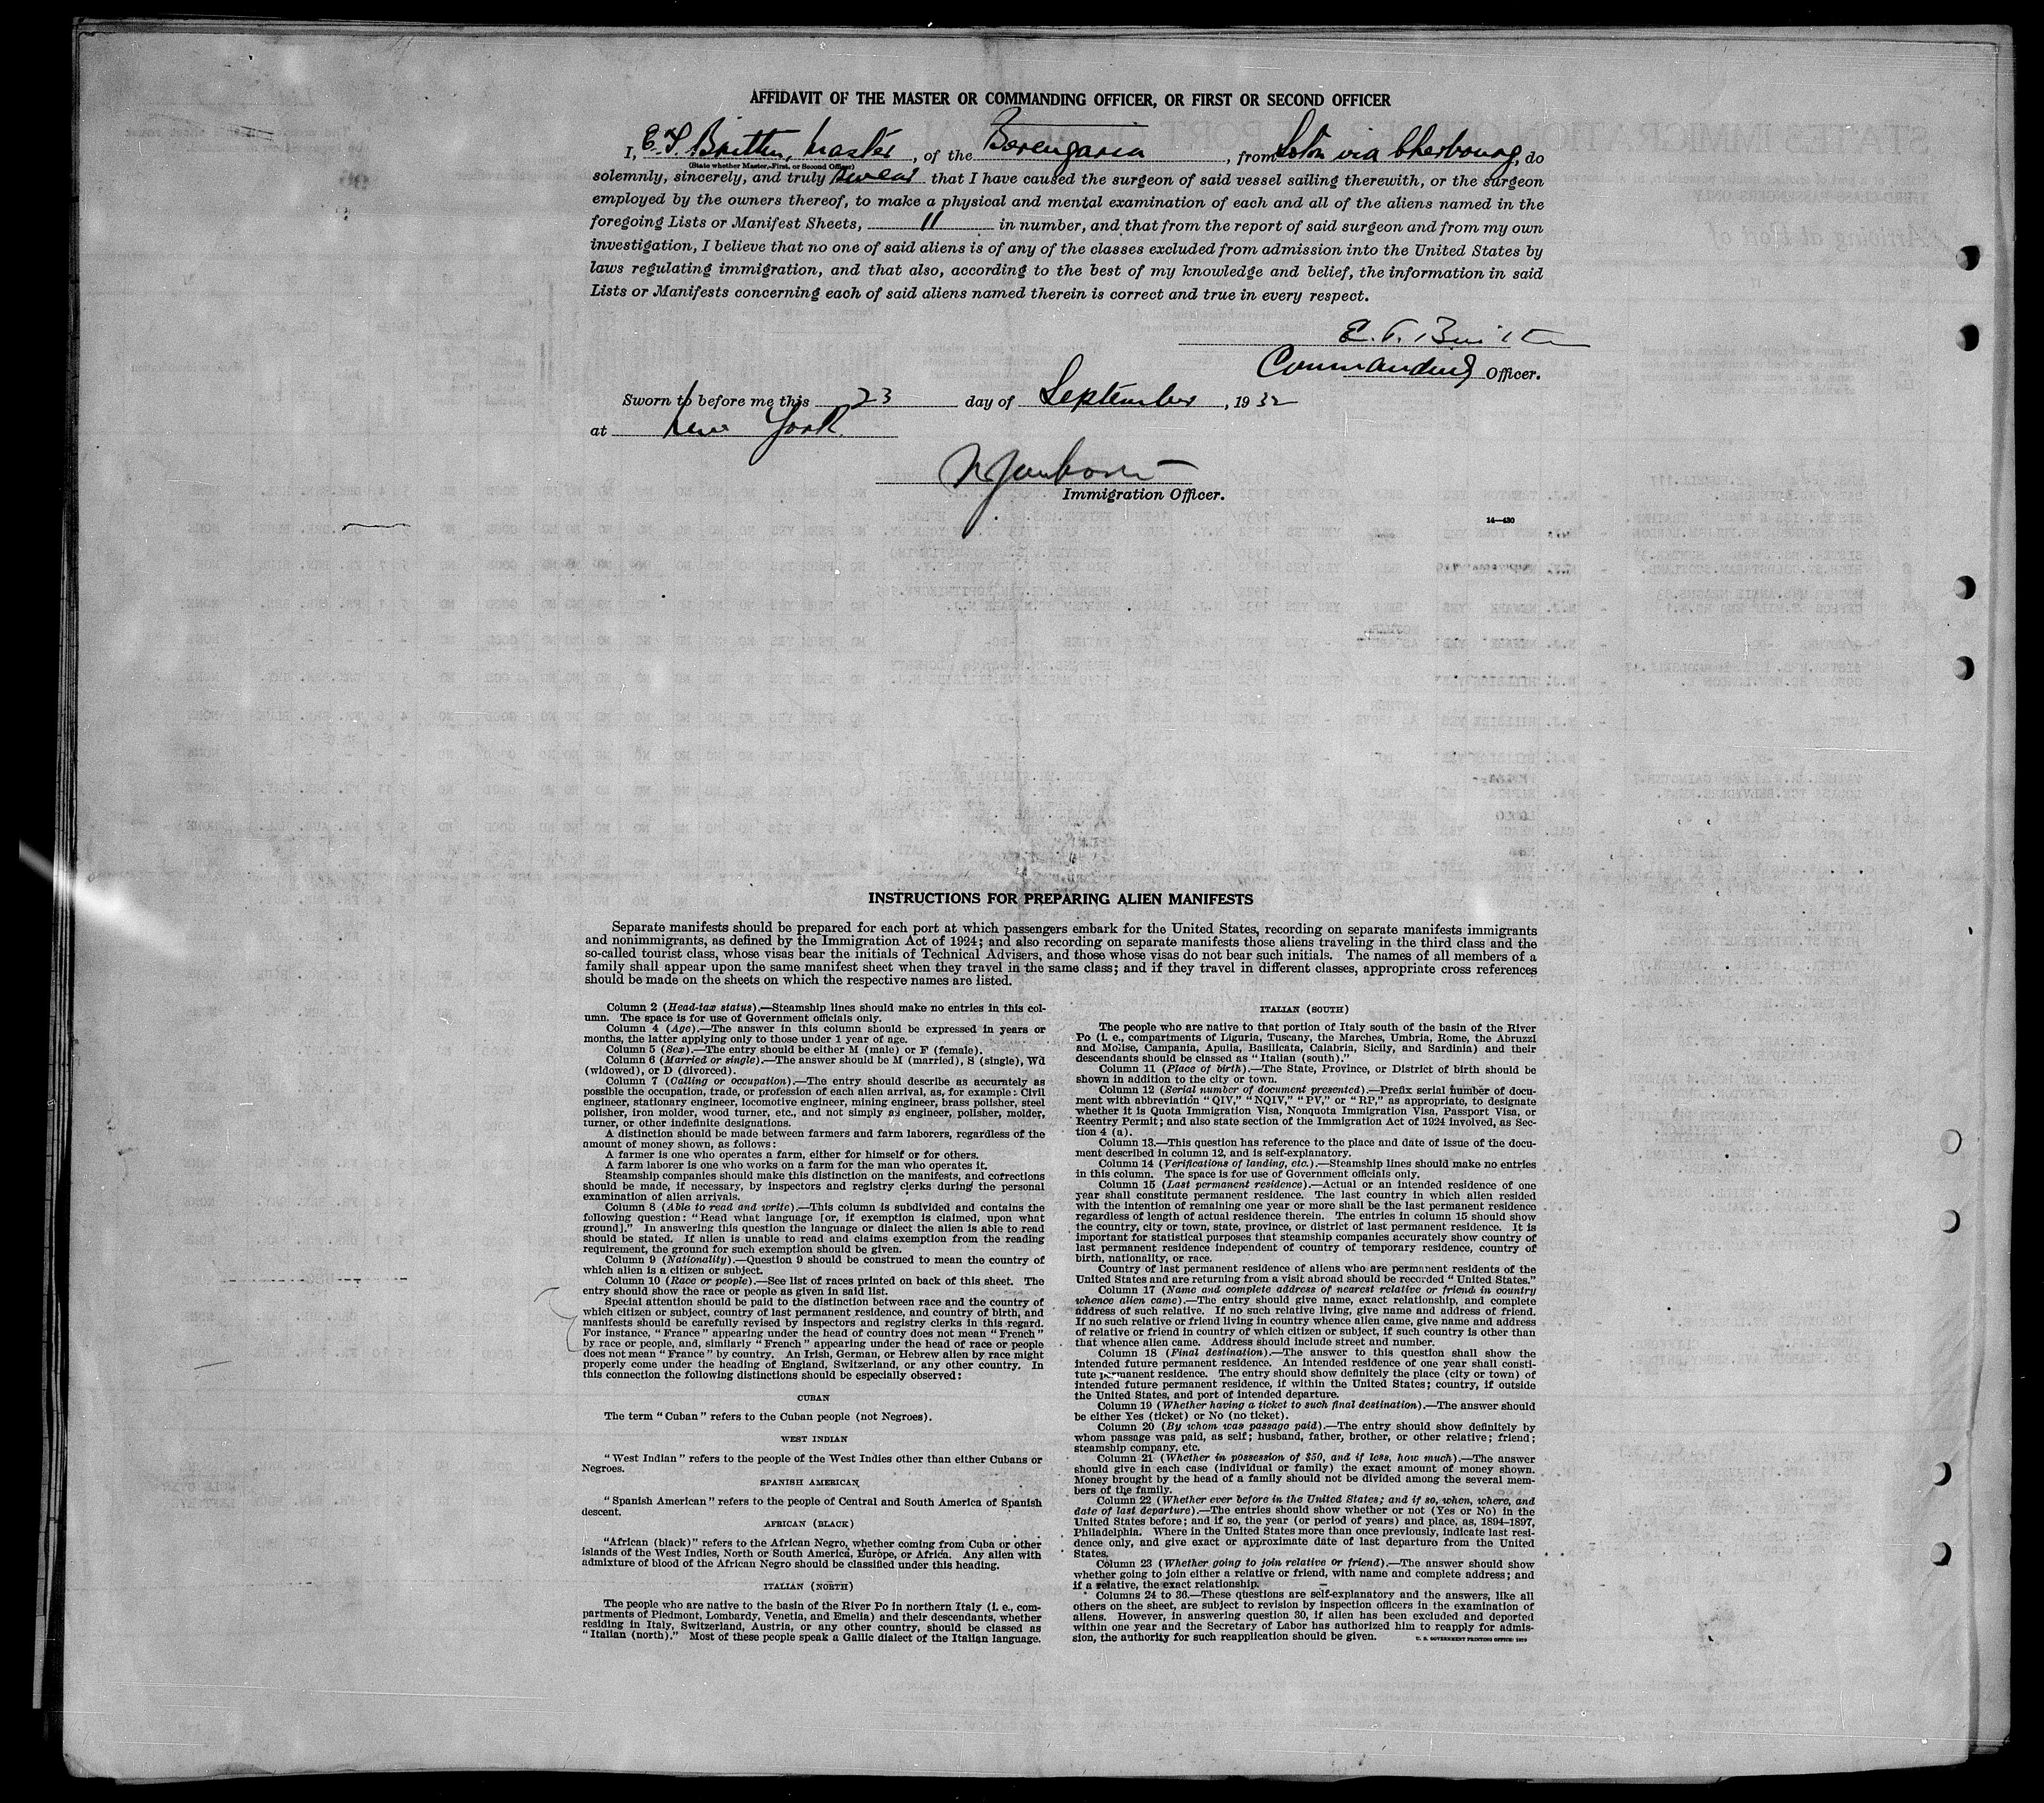 AFFIDAVIT OF THE MASTER OR COMMANDING OFFICER, OR FIRST OR SECOND OFFICER
I, E. T. Britten, Master, of the Berengaria, from Soton via Cherbourg, do
(State whether Master, First, or Second Officer)
solemnly, sincerely, and truly swear that I have caused the surgeon of said vessel sailing therewith, or the surgeon
employed by the owners thereof, to make a physical and mental examination of each and all of the aliens named in the
foregoing Lists or Manifest Sheets, 11 in number, and that from the report of said surgeon and from my own
investigation, I believe that no one of said aliens is of any of the classes excluded from admission into the United States by
laws regulating immigration, and that also, according to the best of my knowledge and belief, the information in said
Lists or Manifests concerning each of said aliens named therein is correct and true in every respect.
E. T. Britten
Commanding Officer.
Sworn to before me this 23 day of September, 1932
at New York
Immigration Officer.
14—430
INSTRUCTIONS FOR PREPARING ALIEN MANIFESTS
Separate manifests should be prepared for each port at which passengers embark for the United States, recording on separate manifests immigrants
and nonimmigrants, as defined by the Immigration Act of 1924; and also recording on separate manifests those aliens traveling in the third class and the
so-called tourist class, whose visas bear the initials of Technical Advisers, and those whose visas do not bear such initials. The names of all members of a
family shall appear upon the same manifest sheet when they travel in the same class; and if they travel in different classes, appropriate cross references
should be made on the sheets on which the respective names are listed.
Column 2 (Head-tax status).—Steamship lines should make no entries in this col-
umn. The space is for use of Government officials only.
Column 4 (Age).—The answer in this column should be expressed in years or
months, the latter applying only to those under 1 year of age.
Column 5 (Sex).—The entry should be either M (male) or F (female).
Column 6 (Married or single).—The answer should be M (married), S (single), Wd
(widowed), or D (divorced).
Column 7 (Calling or occupation).—The entry should describe as accurately as
possible the occupation, trade, or profession of each alien arrival, as, for example: Civil
engineer, stationary engineer, locomotive engineer, mining engineer, brass polisher, steel
polisher, iron molder, wood turner, etc., and not simply as engineer, polisher, molder,
turner, or other indefinite designations.
A distinction should be made between farmers and farm laborers, regardless of the
amount of money shown, as follows:
A farmer is one who operates a farm, either for himself or for others.
A farm laborer is one who works on a farm for the man who operates it.
Steamship companies should make this distinction on the manifests, and corrections
should be made, if necessary, by inspectors and registry clerks during the personal
examination of alien arrivals.
Column 8 (Able to read and write).—This column is subdivided and contains the
following question: "Read what language [or, if exemption is claimed, upon what
ground]." In answering this question the language or dialect the alien is able to read
should be stated. If alien is unable to read and claims exemption from the reading
requirement, the ground for such exemption should be given.
Column 9 (Nationality).—Question 9 should be construed to mean the country of
which alien is a citizen or subject.
Column 10 (Race or people).—See list of races printed on back of this sheet. The
entry should show the race or people as given in said list.
Special attention should be paid to the distinction between race and the country of
which citizen or subject, country of last permanent residence, and country of birth, and
manifests should be carefully revised by inspectors and registry clerks in this regard.
For instance, "France" appearing under the head of country does not mean "French"
by race or people, and, similarly "French" appearing under the head of race or people
does not mean "France" by country. An Irish, German, or Hebrew alien by race might
properly come under the heading of England, Switzerland, or any other country. In
this connection the following distinctions should be especially observed:
CUBAN
The term "Cuban" refers to the Cuban people (not Negroes).
WEST INDIAN
"West Indian" refers to the people of the West Indies other than either Cubans or
Negroes.
SPANISH AMERICAN
"Spanish American" refers to the people of Central and South America of Spanish
descent.
AFRICAN (BLACK)
"African (black)" refers to the African Negro, whether coming from Cuba or other
islands of the West Indies, North or South America, Europe, or Africa. Any alien with
admixture of blood of the African Negro should be classified under this heading.
ITALIAN (NORTH)
The people who are native to the basin of the River Po in northern Italy (i. e., com-
partments of Piedmont, Lombardy, Venetia, and Emelia) and their descendants, whether
residing in Italy, Switzerland, Austria, or any other country, should be classed as
"Italian (north)." Most of these people speak a Gallic dialect of the Italian language.
ITALIAN (SOUTH)
The people who are native to that portion of Italy south of the basin of the River
Po (i. e., compartments of Liguria, Tuscany, the Marches, Umbria, Rome, the Abruzzi
and Molise, Campania, Apulia, Basilicata, Calabria, Sicily, and Sardinia) and their
descendants should be classed as "Italian (south)."
Column 11 (Place of birth).—The State, Province, or District of birth should be
shown in addition to the city or town.
Column 12 (Serial number of document presented).—Prefix serial number of docu-
ment with abbreviation "QIV," "NQIV," "PV," or "RP," as appropriate, to designate
whether it is Quota Immigration Visa, Nonquota Immigration Visa, Passport Visa, or
Reentry Permit; and also state section of the Immigration Act of 1924 involved, as Sec-
tion 4 (a).
Column 13.—This question has reference to the place and date of issue of the docu-
ment described in column 12, and is self-explanatory.
Column 14 (Verifications of landing, etc.).—Steamship lines should make no entries
in this column. The space is for use of Government officials only.
Column 15 (Last permanent residence).—Actual or an intended residence of one
year shall constitute permanent residence. The last country in which alien resided
with the intention of remaining one year or more shall be the last permanent residence
regardless of length of actual residence therein. The entries in column 15 should show
the country, city or town, state, province, or district of last permanent residence. It is
important for statistical purposes that steamship companies accurately show country of
last permanent residence independent of country of temporary residence, country of
birth, nationality, or race.
Country of last permanent residence of aliens who are permanent residents of the
United States and are returning from a visit abroad should be recorded "United States."
Column 17 (Name and complete address of nearest relative or friend in country
whence alien came).—The entry should give name, exact relationship, and complete
address of such relative. If no such relative living, give name and address of friend.
If no such relative or friend living in country whence alien came, give name and address
of relative or friend in country of which citizen or subject, if such country is other than
that whence alien came. Address should include street and number.
Column 18 (Final destination).—The answer to this question shall show the
intended future permanent residence. An intended residence of one year shall consti-
tute permanent residence. The entry should show definitely the place (city or town) of
intended future permanent residence, if within the United States; country, if outside
the United States, and port of intended departure.
Column 19 (Whether having a ticket to such final destination).—The answer should
be either Yes (ticket) or No (no ticket).
Column 20 (By whom was passage paid).—The entry should show definitely by
whom passage was paid, as self; husband, father, brother, or other relative; friend;
steamship company, etc.
Column 21 (Whether in possession of $50, and if less, how much).—The answer
should give in each case (individual or family) the exact amount of money shown.
Money brought by the head of a family should not be divided among the several mem-
bers of the family.
Column 22 (Whether ever before in the United States; and if so, when, where, and
date of last departure).—The entries should show whether or not (Yes or No) in the
United States before; and if so, the year (or period of years) and place, as, 1894–1897,
Philadelphia. Where in the United States more than once previously, indicate last resi-
dence only, and give exact or approximate date of last departure from the United
States.
Column 23 (Whether going to join relative or friend).—The answer should show
whether going to join either a relative or friend, with name and complete address; and
if a relative, the exact relationship.
Columns 24 to 36.—These questions are self-explanatory and the answers, like all
others on the sheet, are subject to revision by inspection officers in the examination of
aliens. However, in answering question 30, if alien has been excluded and deported
within one year and the Secretary of Labor has authorized him to reapply for admis-
sion, the authority for such reapplication should be given.
U. S. GOVERNMENT PRINTING OFFICE: